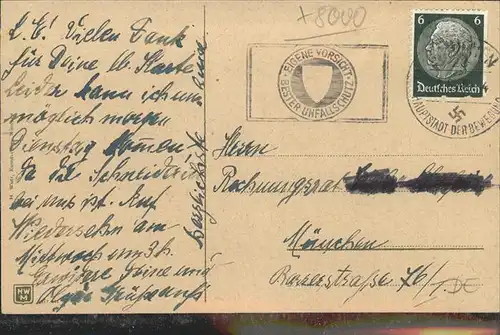 +8000
L. E! Vielen Dank
für Deine lb. Karte
leider kann ich un-
möglich morgen
Dienstag kommen
da die Schneiderin
bei uns ist. Auf
Wiedersehn am
Mittwoch um 3 h.
Deine und
Grüße
EIGENE VORSICHT
BESTER UNFALLSCHUTZ
6 6
Deutsches Reich
HAUPTSTADT DER BEWEGUNG
Herrn
Rechnungsrat
München
straße 76/I
DE
HWM